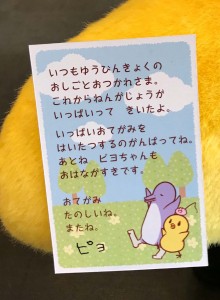 いつもゆうびんきょくの
おしごとおつかれさま。
これからねんがじょうが
いっぱいって きいたよ。
いっぱいおてがみを
はいたつするのがんばってね。
あとね ピヨちゃんも
おはながすきです。
おてがみ
たのしいね。
またね。
ピヨ